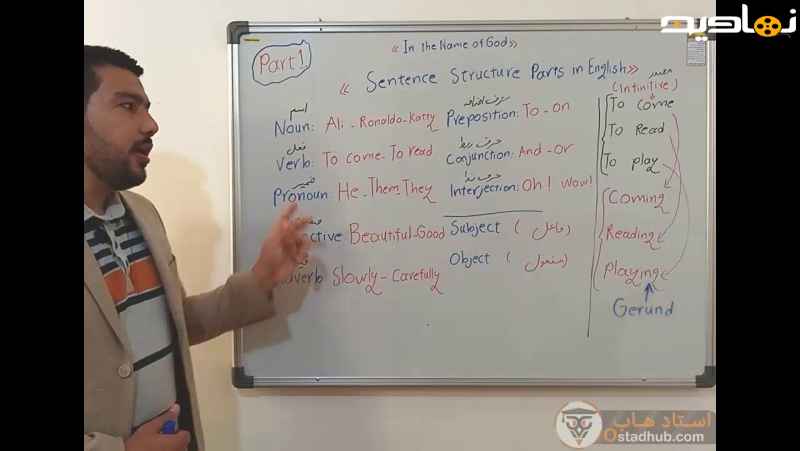 نمادیه
« In the Name of God »
Part 1
« Sentence Structure Parts in English »
مصدر
(Infinitive)
اسم
Noun: Ali - Ronaldo - Katty
فعل
Verb: To come - To read
ضمیر
Pronoun He - Them - They
ctive Beautiful - Good
dverb Slowly - Carefully
حرف اضافه
Preposition: To - on
حرف ربط
Conjunction: And - or
حرف ندا
Interjection: Oh! Wow!
Subject ( فاعل )
Object ( مفعول )
To come
To Read
To play
Coming
Reading
Playing
Gerund
استاد هاب
Ostadhub.com